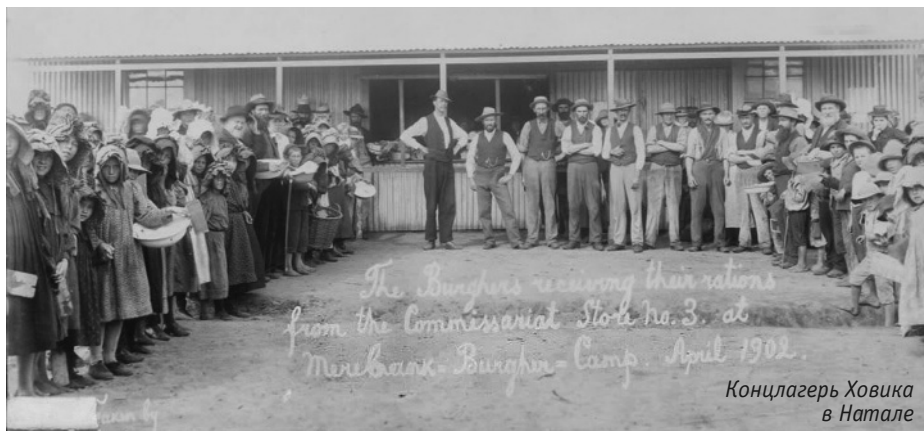 The Burghers receiving their rations
from the Commissariat Store No. 3. at
Merebank=Burgher=Camp. April 1902.
Taken by
Концлагерь Ховика
в Натале